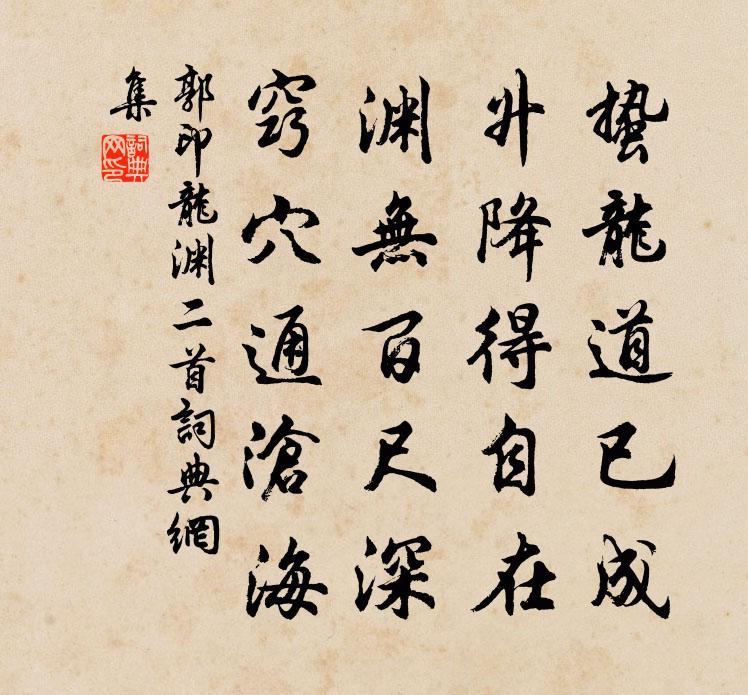 蟄龍道已成
升降得自在
渊無百尺深
窍穴通滄海
郭印龍渊二首詞典網
集
詞典網印